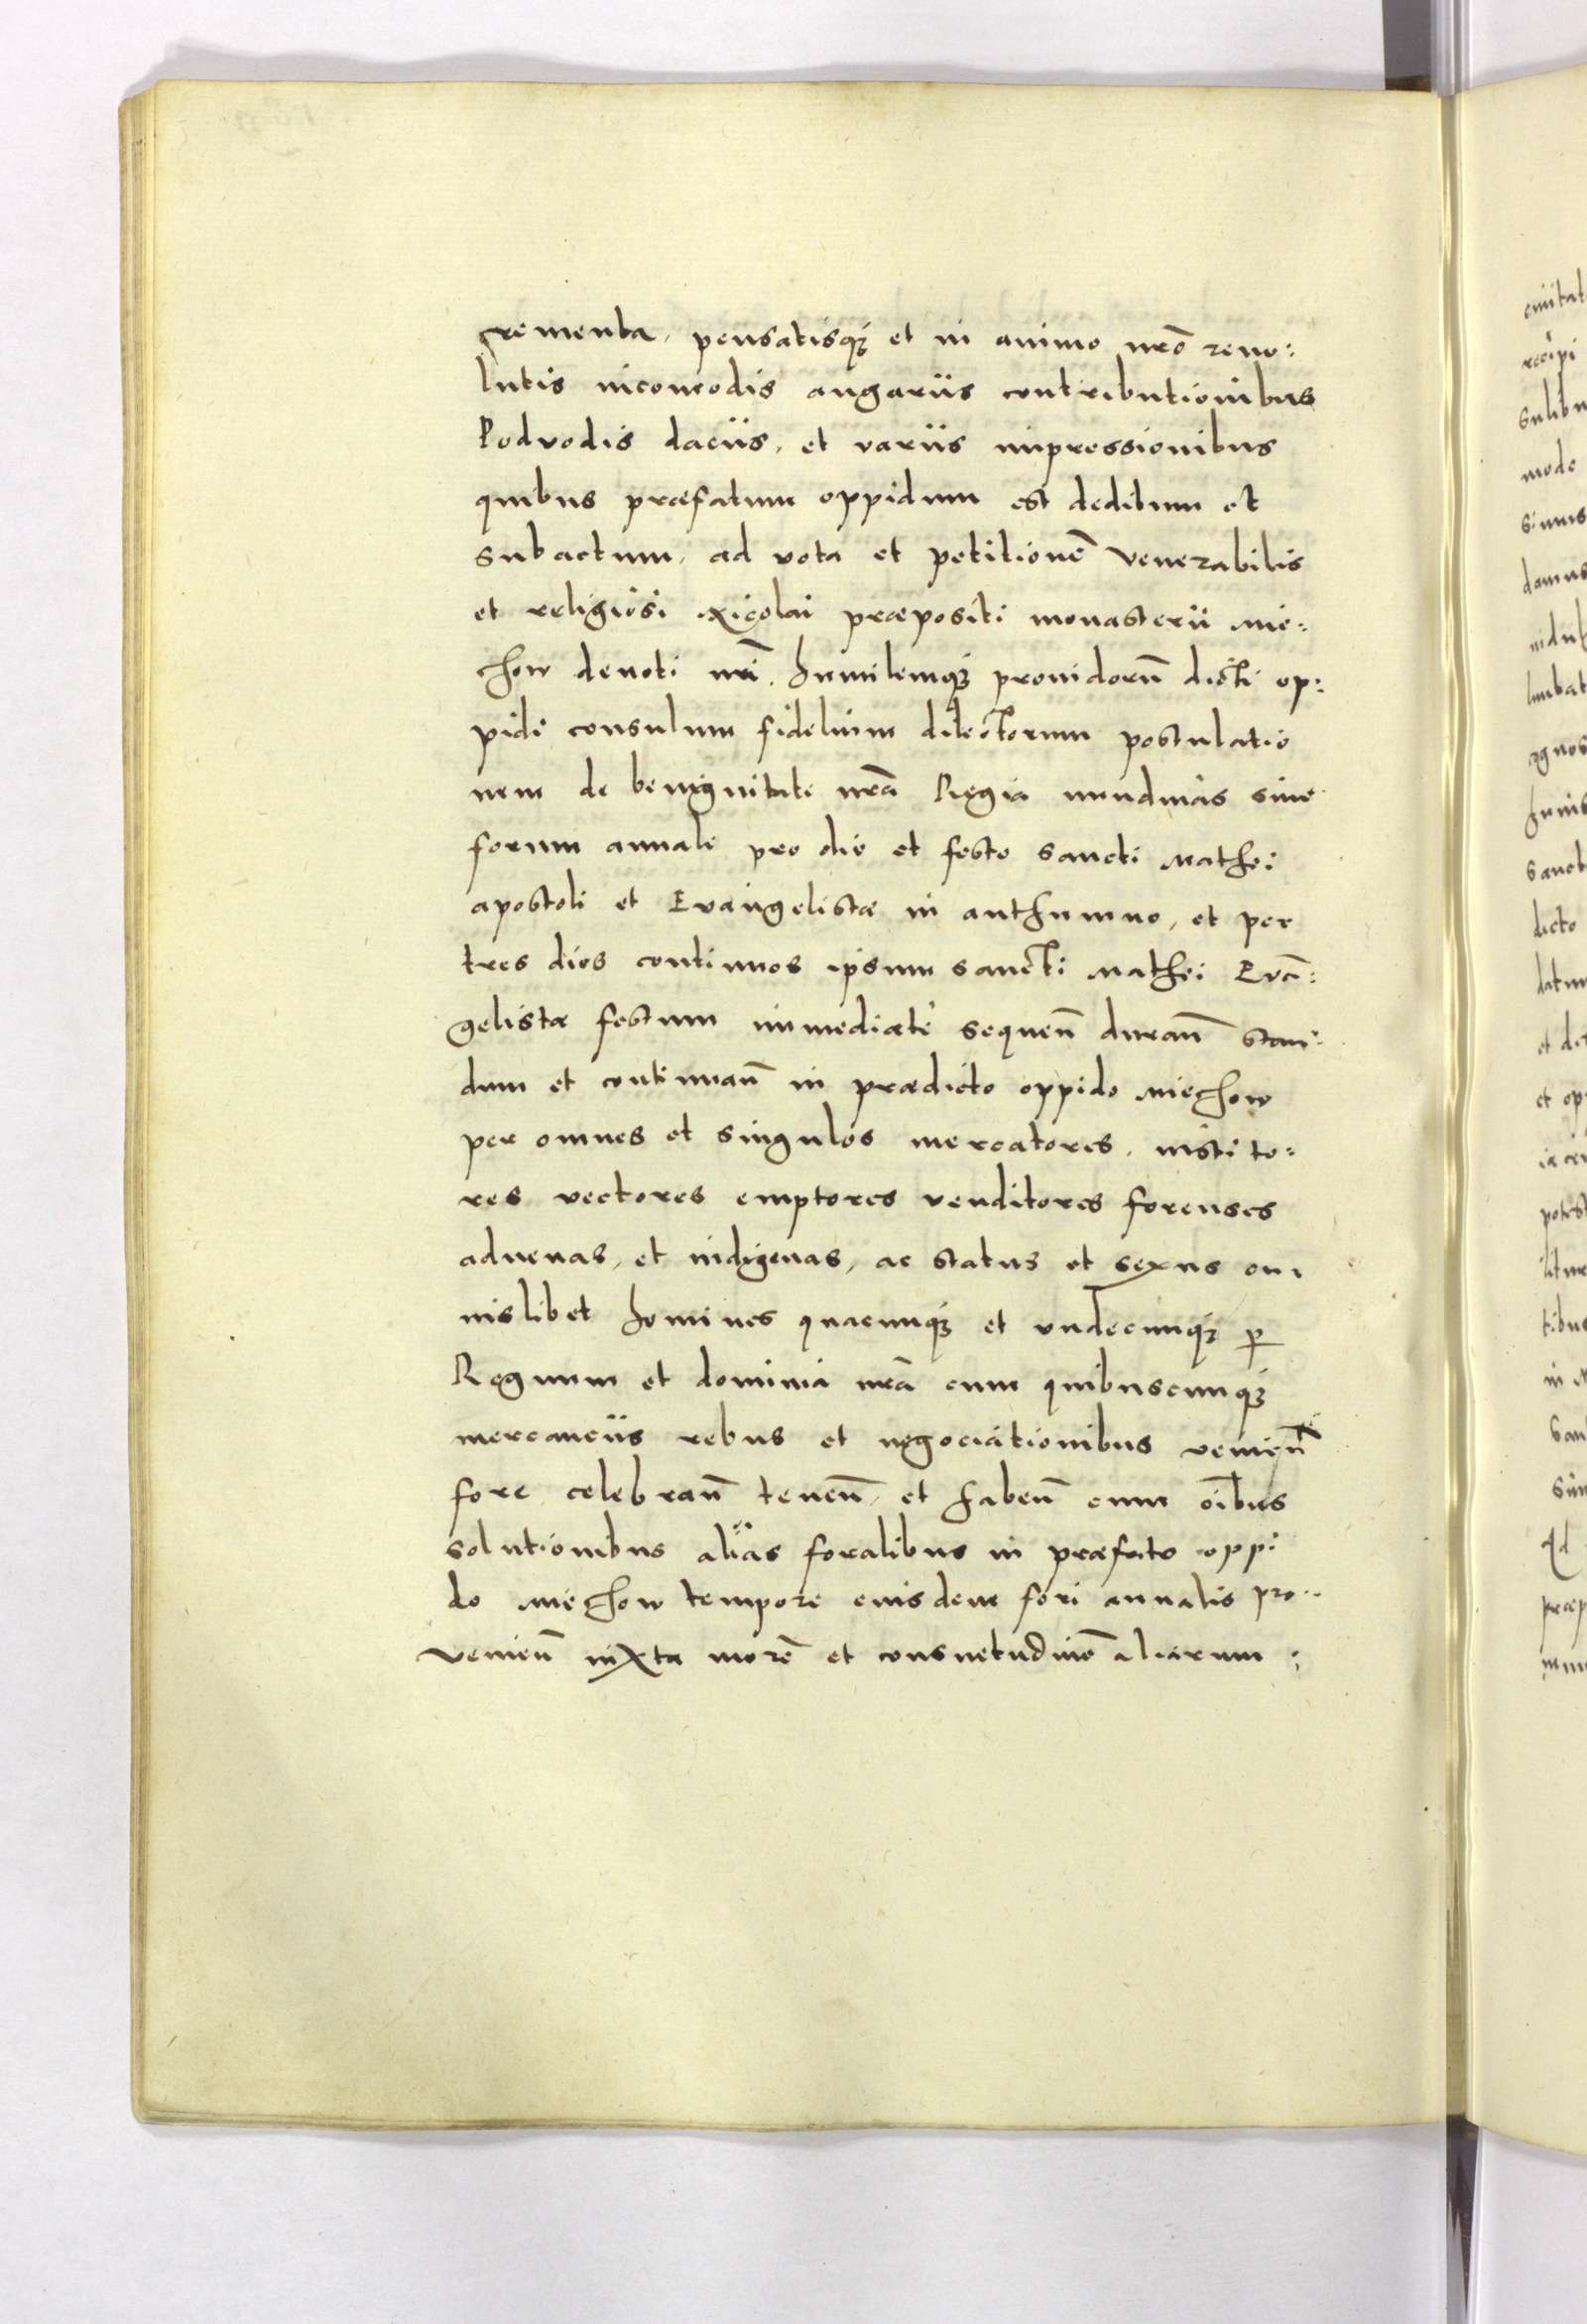 crementa, pensatisq3 et in animo nr̄o reuo:
lutis incom̄odis angariis contributionibus
Podvodis daciis, et variis impressionibus
quibus præfatum oppidum est deditum et
subactum, ad vota et petitionē venerabilis
et religiosi Nicolai præpositi monasterii Mie:
chow deuoti nr̄i, humilemq3 prouidorū dicti op:
pidi consulum fidelium dilectorum postulatio
nem de benignitate nr̄a Regia nundinas siue
forum annale pro die et festo sancti Mathei
apostoli et Evangelistæ in authumno, et per
tres dies continuos ipsum sancti Mathei Evā:
gelistæ festum immediate sequen̄ duran̄ stan:
dum et continuan̄ in prædicto oppido Miechow
per omnes et singulos mercatores, instito:
res vectores emptores venditores forenses
aduenas, et indigenas, ac status et sexus om
nislibet homines quacunq3 et vndecunq3 p
Regnum et dominia nr̄a cum quibuscunq3
mercanciis rebus et negociationibus venien̄
fore celebran̄ tenen̄, et haben̄ cum oībus
solutionibus alias foralibus in præfato oppi
do Miechow tempore eiusdem fori annalis pro..
venien̄ iuxta morē et consuetudinē aliarum :